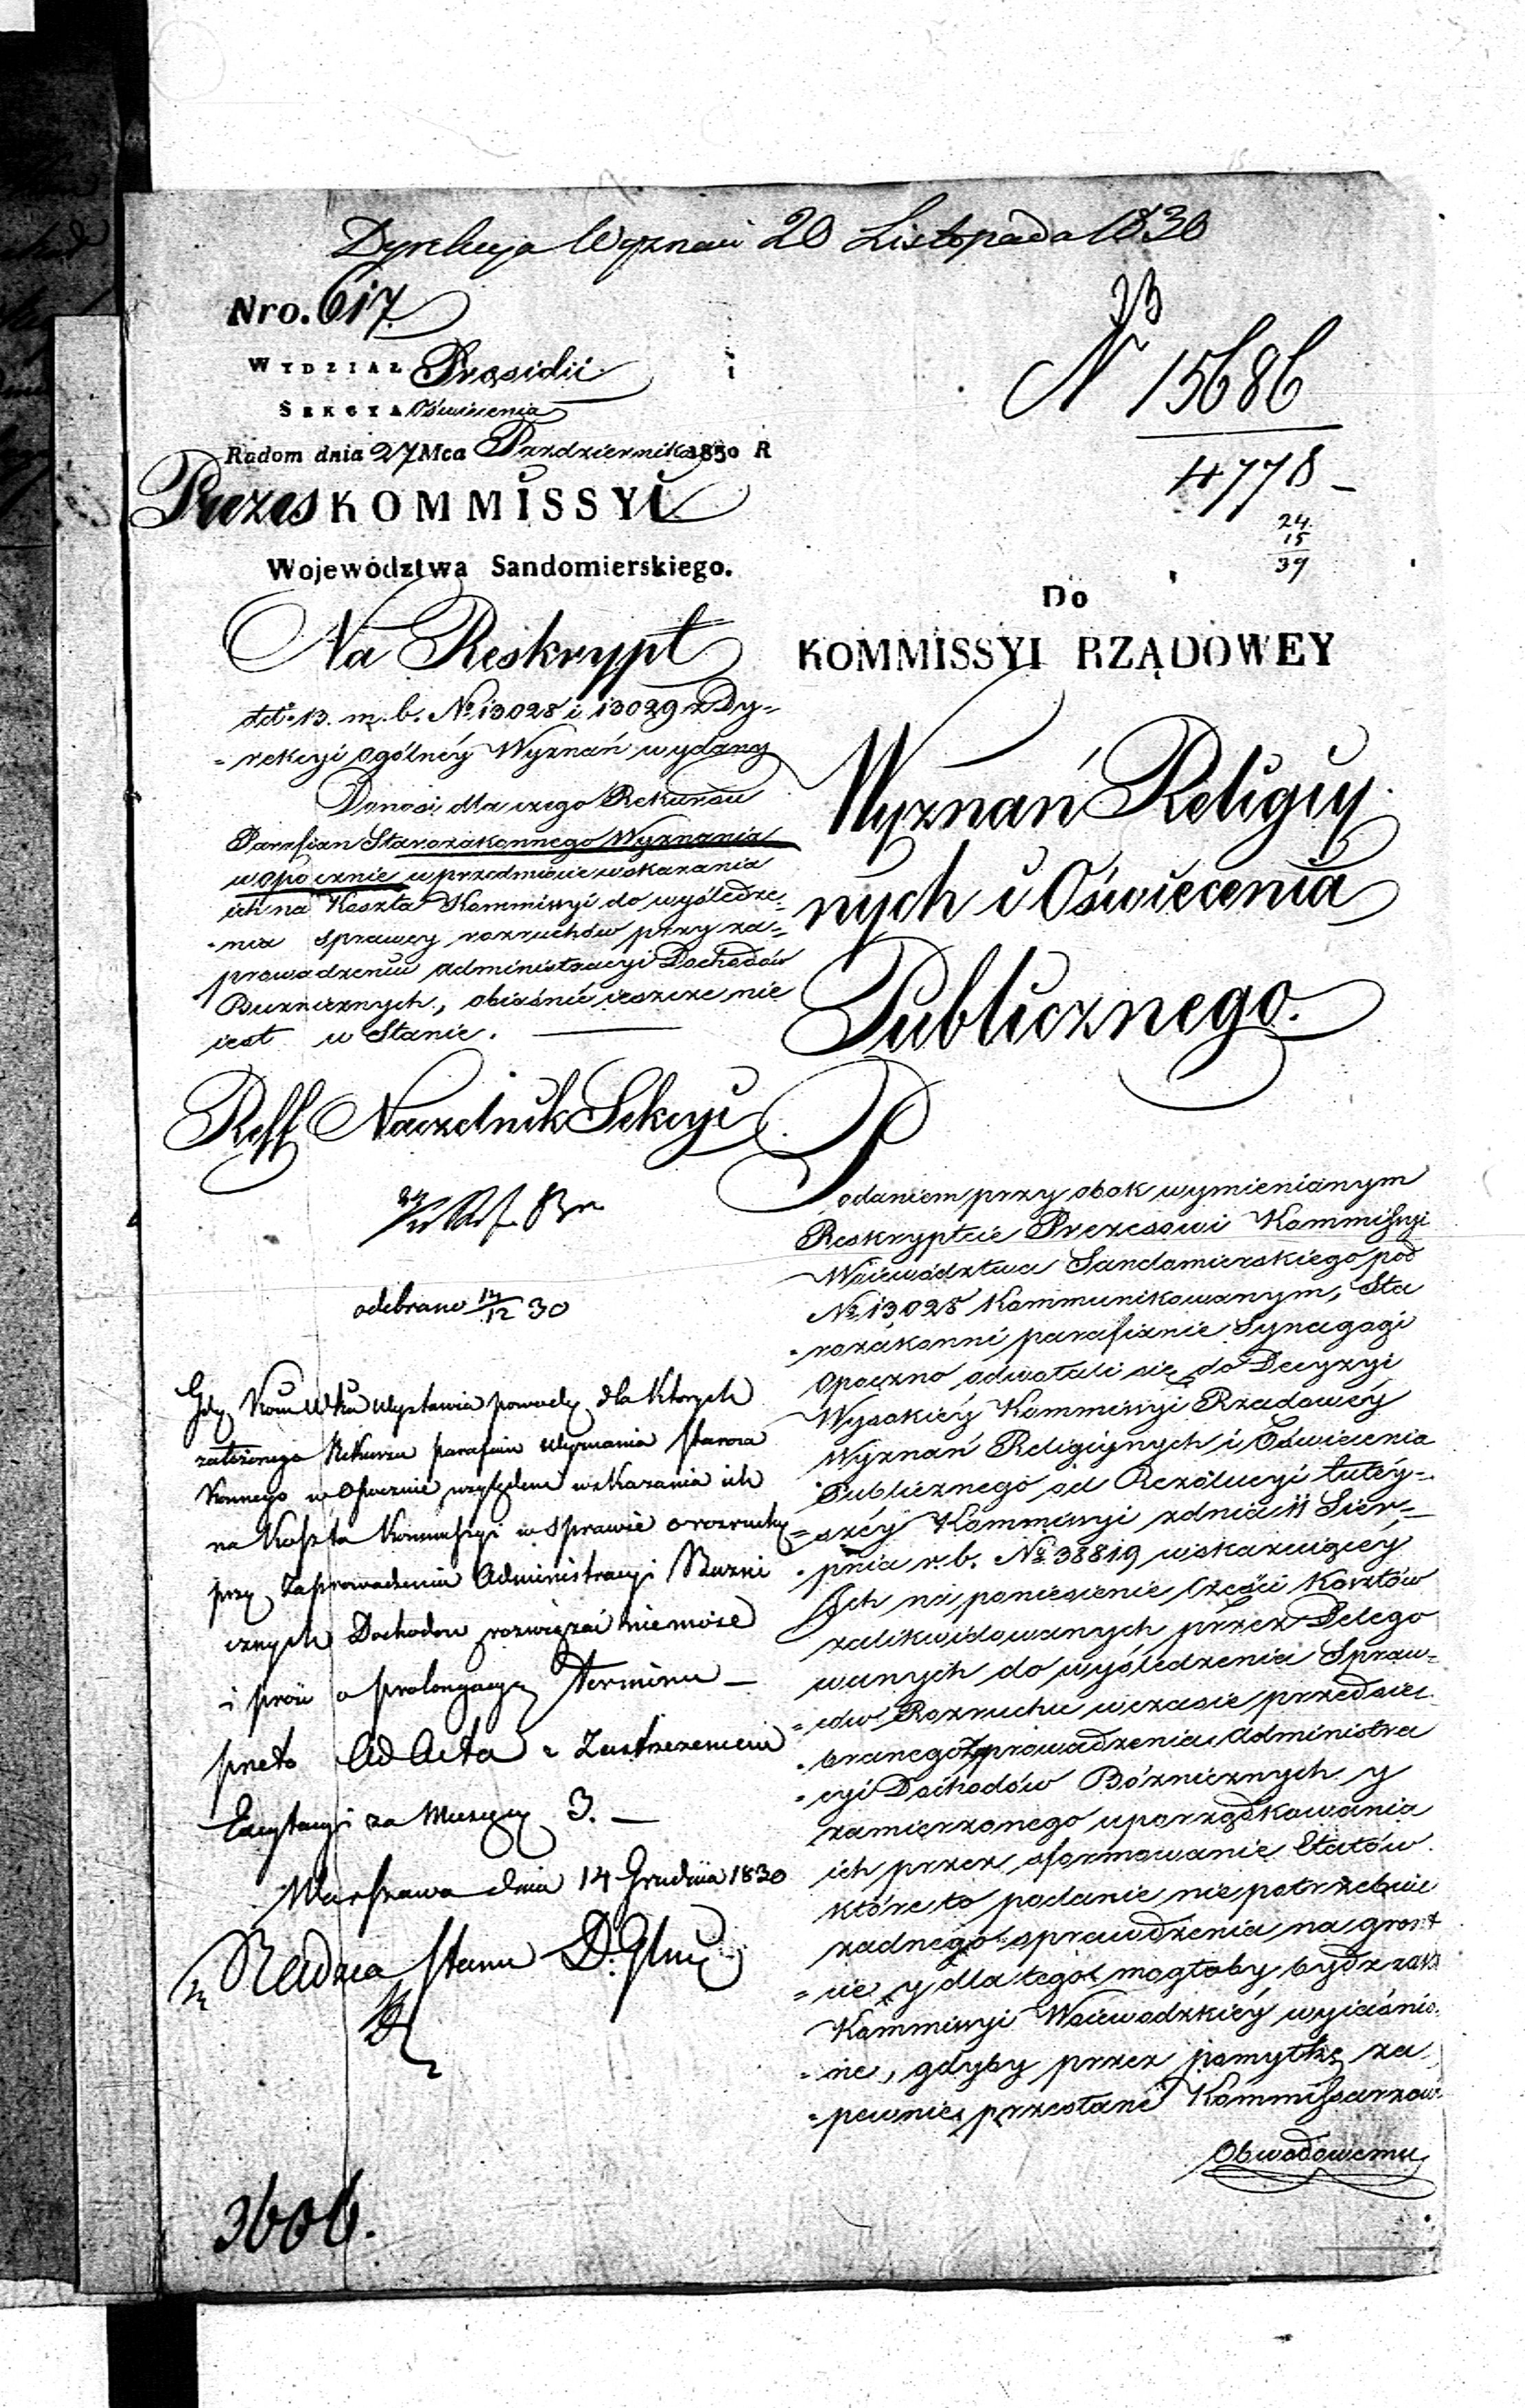 Dyrekcya Wyznań 20 Listopada 1830
Nro. 617.
WYDZIAŁ Prezidii
SEKCYA Oświecenia
Radom dnia 27 Mca Pazdziernika 1830 R
Prezes KOMMISSYI
Województwa Sandomierskiego.
Na Reskrypt
dtt. 13. m. b. № 13028 i 13029 z Dy=
=rekcyi Ogólnéy Wyznań wydany
Donosi dla czego Rekursu
Parafian Starozakonnego Wyznania
w Opocznie w przedmiocie wskazania
ich na Koszta Kommissyi do wyśledze=
=nia sprawcy rozruchów przy za=
prowadzeniu administracyi Dochodów
Buznicznych, obiaśnić ieszcze nie
iest w Stanie.
Reff Naczelnik Sekcyi
odebrano 14/12 30
Gdy Kom Wka Wystawia powody dla ktorych
założonego Rekursu parafian Wyznania staroza
konnego w Opocznie względem wskazania ich
na Koszta Kommissyi w sprawie o rozruchy
przy zaprowadzeniu Administracyi Buzni
cznych Dochodow rozwiązać nie może
i prosi o prolongacyą Terminu —
przeto Ad Acta z Zastrzeżeniem
Excytacyi za Miesięcy 3. —
Warszawa dnia 14 Grudnia 1830
Radzca Stanu D. Głny
3606.
23
N 15686
4778 –
24
15
39
Do
KOMMISSYI RZĄDOWEY
Wyznań Religiy
nych i Oświecenia
Publicznego.
Podaniem przy obok wymienionym
Reskrypcie Prezesowi Kommissyi
Woiewództwa Sandomierskiego pod
№ 13028 Kommunikowanym, Sta
=rozakonni parafianie Synagogi
Opoczno odwołali się do Decyzyi
Wysokiéy Kommissyi Rządowéy
Wyznań Religiynych i Oświecenia
Publicznego od Rezolucyi tutéy=
=széy Kommissyi z dnia 11 Sier=
=pnia r. b. № 38819 wskazuiącéy
Ich na poniesienie części Kosztów
zalikwidowanych przez Delego
wanych do wyśledzenia Spraw=
=ców Rozruchu w czasie przedsię
=branego zaprowadzenia Administra
=cyi Dochodów Bóżnicznych y
zamierzonego uporządkowania
ich przez sformowanie Etatów.
które to podanie nie potrzebuie
żadnego sprawdzenia na grunt
=cie y dla tego mogłoby bydź zaraz
Kommissyi Woiewodzkiéy wyiaśnio
=ne, gdyby przez pomyłkę za=
=pewnie, przesłane Kommissarzowi
Obwodowemu